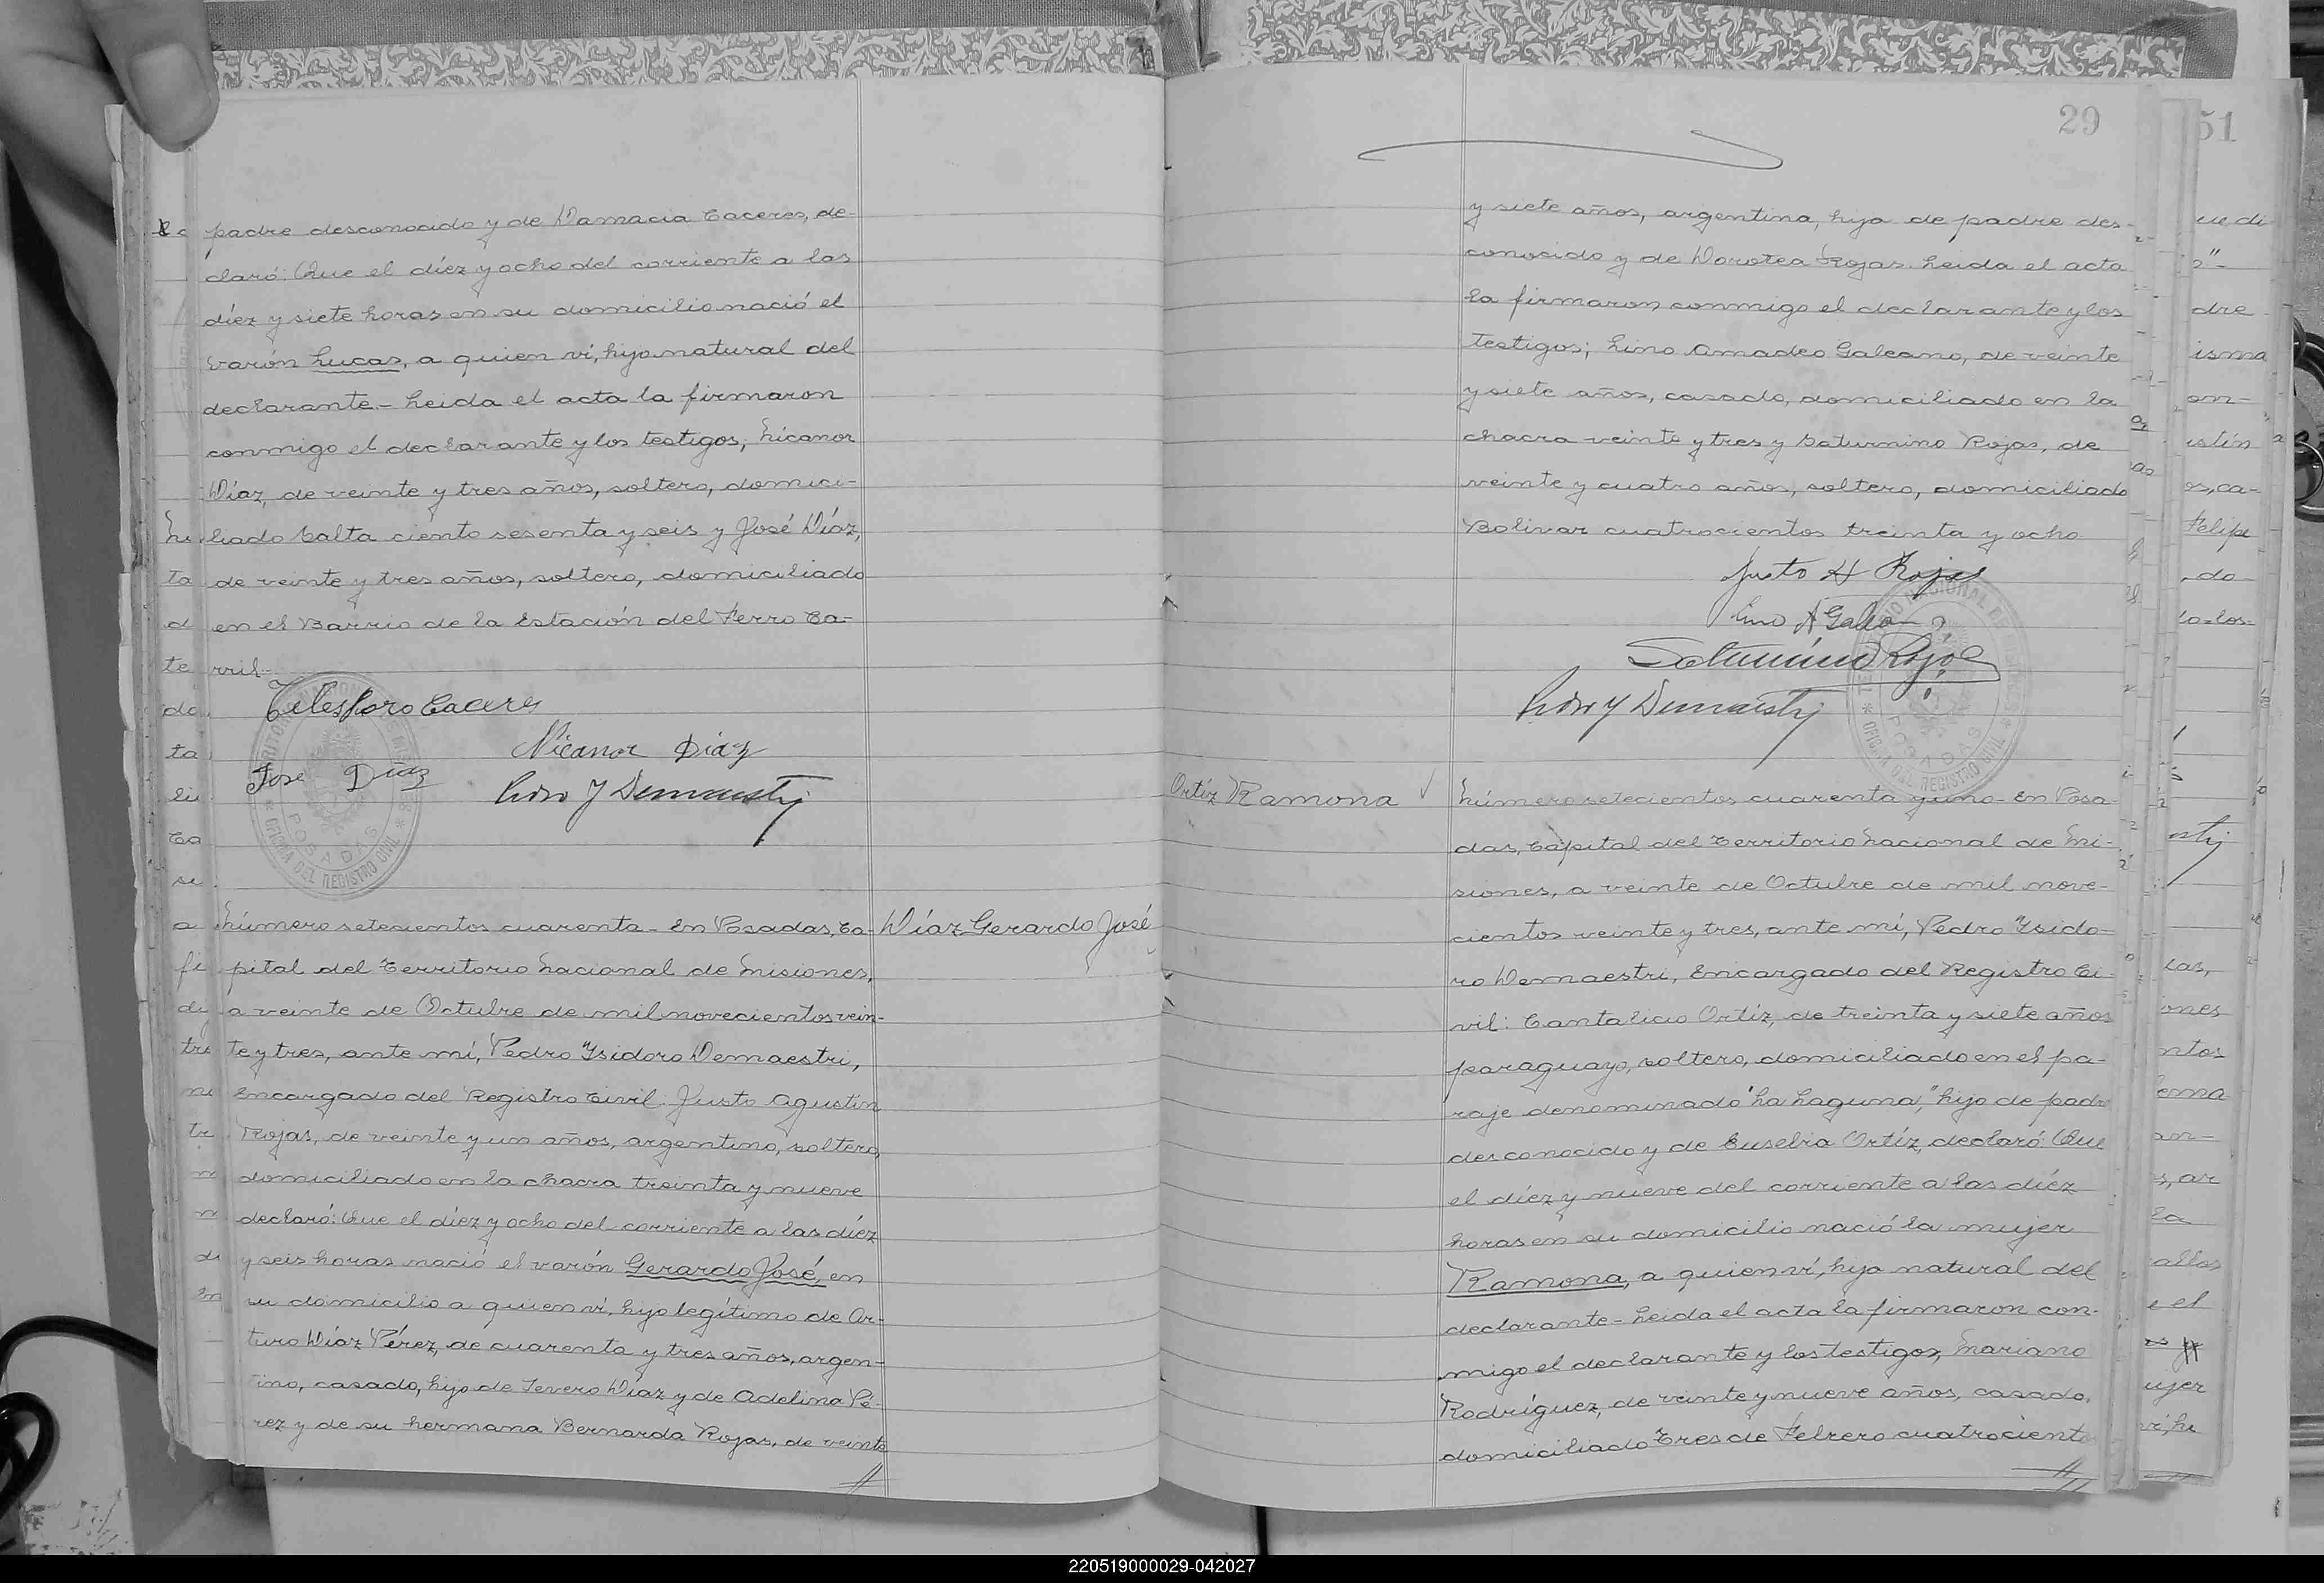 padre desconocido y de Damacia Caceres, de-
claró: Que el díez y ocho del corriente a las
díez y siete horas en su domicilio nació el
varón Lucas, a quien ví, hijo natural del
declarante - Leida el acta la firmaron
conmigo el declarante y los testigos; Nicanor
Díaz, de veinte y tres años, soltero, domici-
liado Salta ciento sesenta y seis y José Díaz,
de veinte y tres años, soltero, domiciliado
en el Barrio de la Estación del Ferro Ca-
rril.
Telesforo Caceres
Nicanor Diaz
Jose Diaz
Pedro Y Demaestri
OFICINA DEL REGISTRO CIVIL
POSADAS
Díaz Gerardo José
Número setecientos cuarenta - En Posadas, Ca-
pital del Territorio Nacional de Misiones,
a veinte de Octubre de mil novecientos vein-
te y tres, ante mí, Pedro Ysidoro Demaestri,
Encargado del Registro Civil: Justo Agustin
Rojas, de veinte y un años, argentino, soltero,
domiciliado en la chacra treinta y nueve
declaró: Que el díez y ocho del corriente a las díez
y seis horas nació el varón Gerardo José, en
su domicilio a quien ví, hijo legítimo de Ar-
turo Díaz Pérez, de cuarenta y tres años, argen-
tino, casado, hijo de Severo Díaz y de Adelina Pé-
rez y de su hermana Bernarda Rojas, de veinte
29
y siete años, argentina, hija de padre des-
conocido y de Dorotea Rojas. Leida el acta
la firmaron conmigo el declarante y los
testigos; Lino Amadeo Galeano, de veinte
y siete años, casado, domiciliado en la
chacra veinte y tres y Saturnino Rojas, de
veinte y cuatro años, soltero, domiciliado
Bolivar cuatrocientos treinta y ocho
Justo A Rojas
Lino A Galeano
Saturnino Rojas
Pedro Y Demaestri
OFICINA DEL REGISTRO CIVIL
POSADAS
Ortíz Ramona
Número setecientos cuarenta y uno - En Posa-
das, Capital del Territorio Nacional de Mi-
siones, a veinte de Octubre de mil nove-
cientos veinte y tres, ante mí, Pedro Ysido-
ro Demaestri, Encargado del Registro Ci-
vil: Cantalicio Ortíz, de treinta y siete años
paraguayo, soltero, domiciliado en el pa-
raje denominado "La Laguna", hijo de padre
desconocido y de Eusebia Ortíz, declaró: Que
el díez y nueve del corriente a las díez
horas en su domicilio nació la mujer
Ramona, a quien ví, hija natural del
declarante - Leida el acta la firmaron con-
migo el declarante y los testigos, Mariano
Rodríguez, de veinte y nueve años, casado,
domiciliado Tres de Febrero cuatrociento
51
220519000029-042027